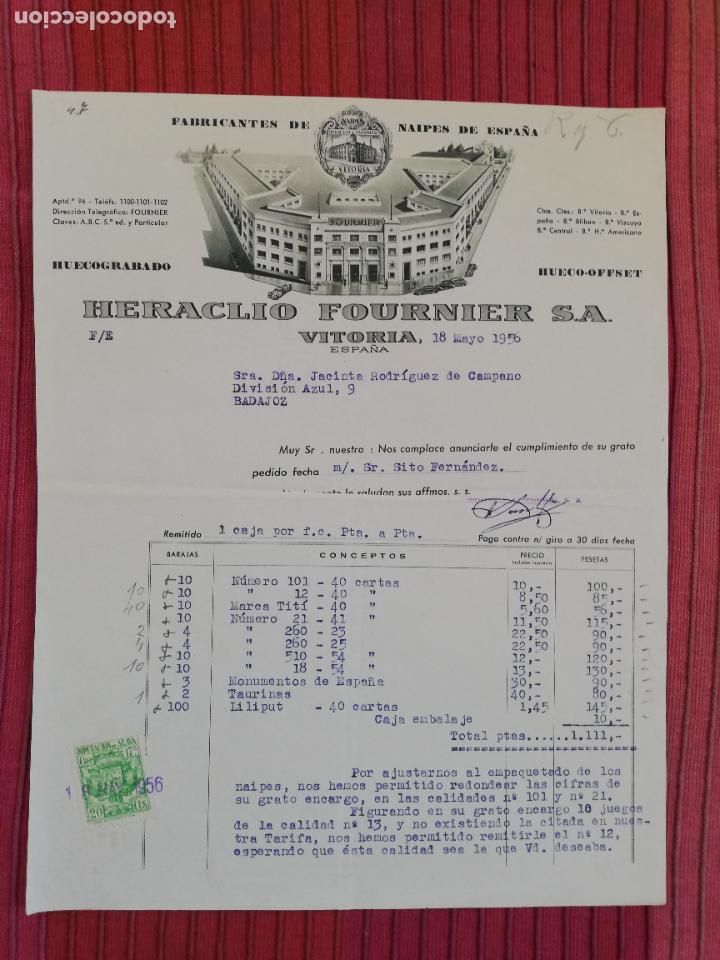 todocoleccion
47
R y T.
FABRICANTES DE NAIPES DE ESPAÑA
NAIPES
VITORIA
FOURNIER
Aptd.º 94 - Teléfs. 1100-1101-1102
Dirección Telegráfica: FOURNIER
Claves: A.B.C. 5.ª ed. y Particular
Ctas. Ctes.: B.º Vitoria - B.º Es-
paña - B.º Bilbao - B.º Vizcaya
B.º Central - B.º H.º Americano
HUECOGRABADO HUECO-OFFSET
HERACLIO FOURNIER S.A.
F/E VITORIA, 18 Mayo 1956
ESPAÑA
Sra. Dña. Jacinta Rodríguez de Campano
División Azul, 9
BADAJOZ
Muy Sr . nuestra : Nos complace anunciarle el cumplimiento de su grato
pedido fecha m/. Sr. Sito Fernández.
le saludan sus affmos. s. s.
Remitido 1 caja por f.c. Pta. a Pta. Pago contra n/ giro a 30 días fecha
BARAJAS CONCEPTOS PRECIO PESETAS
10 Número 101 - 40 cartas 10,- 100,-
10 10 " 12 - 40 " 8,50 85,-
40 10 Marca Tití - 40 " 5,60 56,-
10 Número 21 - 41 " 11,50 115,-
2 4 " 260 - 23 22,50 90,-
4 4 " 260 - 25 22,50 90,-
10 " 510 - 54 " 12,- 120,-
10 10 " 18 - 54 " 13,- 130,-
3 Monumentos de España 30,- 90,-
1 2 Taurinas 40,- 80,-
100 Liliput - 40 cartas 1,45 145,-
Caja embalaje 10,-
Total ptas......1.111,-
DIPUTACION DE ALAVA
20 CTS
1956
Por ajustarnos al empaquetado de los
naipes, nos hemos permitido redondear las cifras de
su grato encargo, en las calidades nº 101 y nº 21.
Figurando en su grato encargo 10 juegos
de la calidad nº 13, y no existiendo la citada en nues-
tra Tarifa, nos hemos permitido remitirle el nº 12,
esperando que ésta calidad sea la que Vd. deseaba.